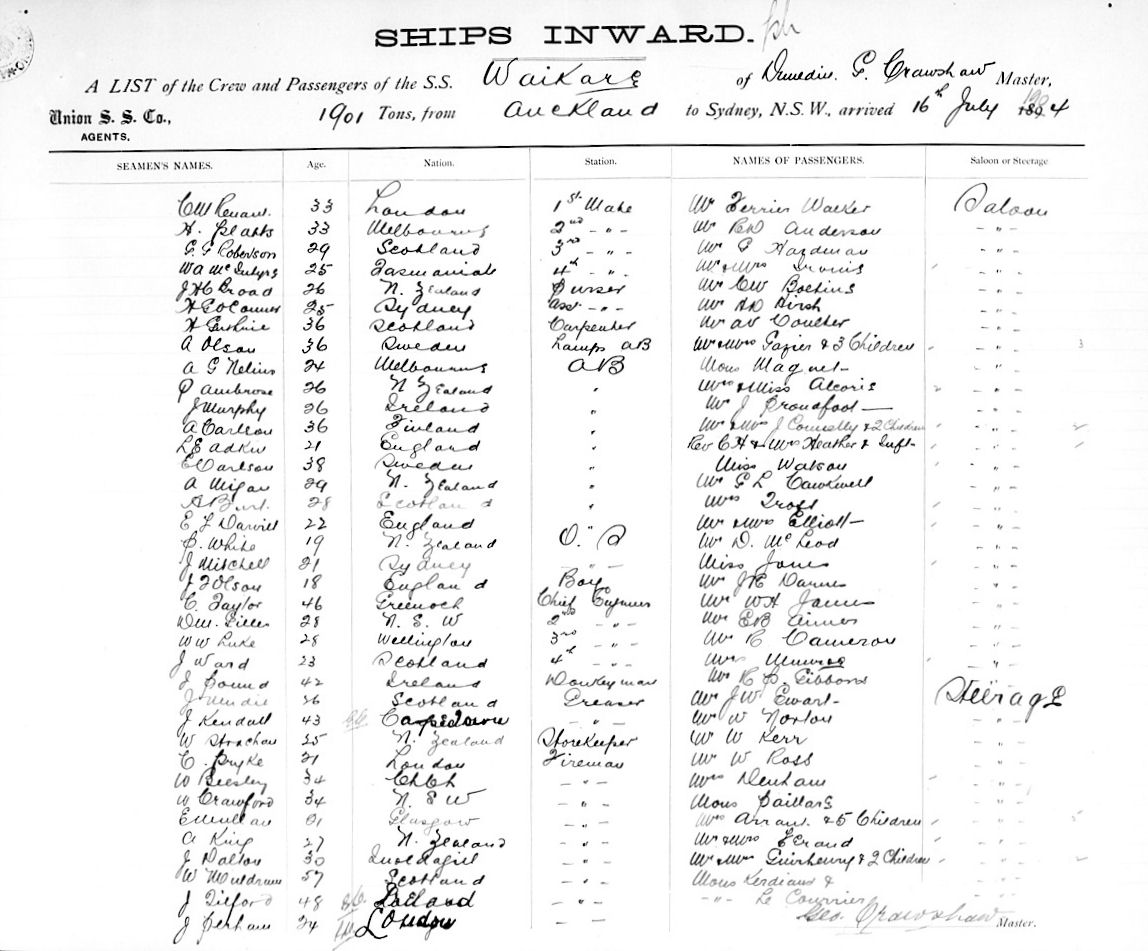 SHIPS INWARD.
A LIST of the Crew and Passengers of the S.S. Waikare of Dunedin G. Crawshaw Master,
Union S. S. Co., AGENTS. 1901 Tons, from Auckland to Sydney, N.S.W., arrived 16th July 1904
SEAMEN'S NAMES. Age. Nation. Station. NAMES OF PASSENGERS. Saloon or Steerage
33 London 1st Mate Mr Ferrier Walker Saloon
H. Platts 33 Melbourne 2nd -"- Mr Anderson -"-
G. F Roberson 29 Scotland 3rd -"- Mr Hardman -"-
Wa McIntyre 25 Tasmania 4th -"- Mr & Mrs -"-
J H C Broad 26 N. Zealand Purser Mr CW -"-
H G O'Connor 25 Sydney asst -"- Mr Hirsh -"-
H Erskine 36 Scotland Carpenter Mr AV Coulter -"-
A Olson 36 Sweden Lamps AB Mr & Mrs Gazier & 3 Children -"- 3
A G Nelius 24 Melbourne AB Mons Magnet -"-
P Ambrose 26 N Zealand " Mrs & Miss Alcoris -"-
J Murphy 26 Ireland " Mr J Proudfoot -"-
A Carlson 36 Finland " Mr & Mrs J Connelly & 2 Children -"-
L E Adkin 21 England " Rev C H & Mrs Heather & Inft -"-
E Carlson 38 Sweden " Miss Watson -"-
A 29 N. Zealand " Mr G L Cawkwell -"-
28 Scotland " Mrs -"-
E F Darvill 22 England " Mr & Mrs Elliott -"-
B. White 19 N. Zealand O.S Mr D. McLeod -"-
J Mitchell 21 Sydney -"- Miss Jones -"-
J F Olson 18 England Boy Mr -"-
C. Taylor 46 Greenock Chief Engineer Mr WH James -"-
Wm. Gillies 28 N. S. W 2nd -"- Mr EB -"-
W W Luke 28 Wellington 3rd -"- Mr R Cameron -"-
J Ward 23 Scotland 4th -"- Mrs Munroe -"-
J Pound 42 Ireland Donkeyman Mr R P. Gibbons
36 Scotland Greaser Mr JW Ewart Steerage
J Kendall 43 Capetown -"- Mr W Norton -"-
W Strachan 25 N. Zealand Storekeeper Mr W Kerr -"-
C. Pryke 21 London Fireman Mr W Ross -"-
W Beesley 34 ChCh -"- Mrs Denham -"-
W Crawford 34 N. S W -"- Mons Paillars -"-
Glasgow -"- Mrs & 5 Children -"-
A King 27 N. Zealand -"- Mr & Mrs -"-
J Dalton 30 -"- Mr & Mrs & 2 Children -"-
W Muldrum 57 Scotland -"- Mons &
J Tilford 48 -"- -"- Le Courrier
J Perham 24 London -"- Geo. Crawshaw Master.